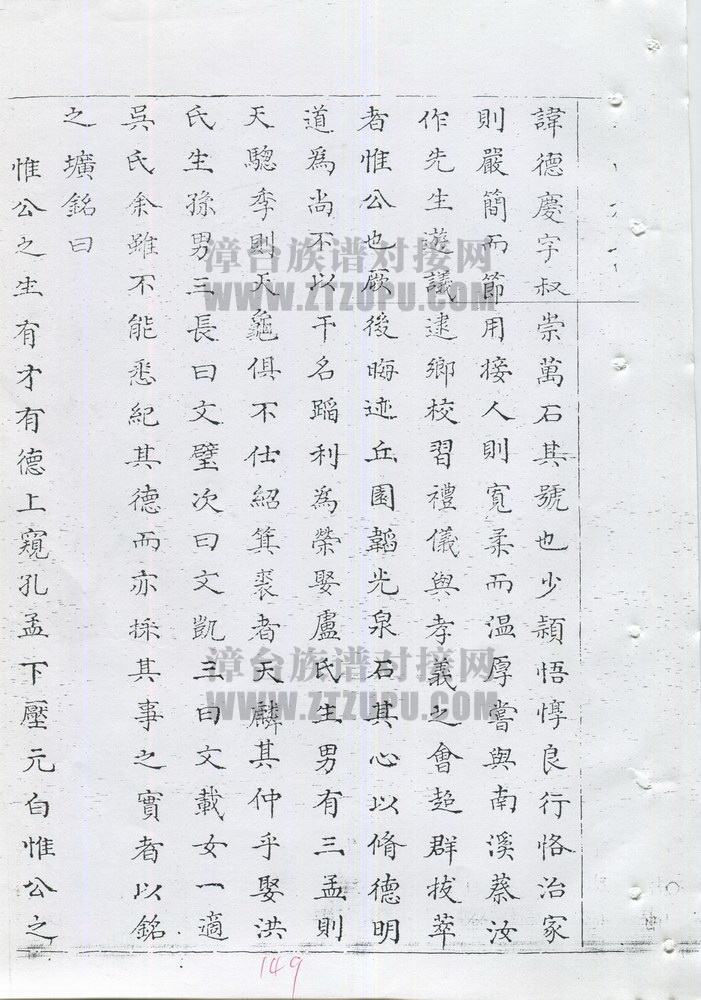 諱德慶字叔崇萬石其號也少穎悟惇良行恪治家
則嚴簡而節用接人則寬柔而温厚嘗與南溪蔡汝
作先生遊議逮鄉校習禮儀與孝義之會超群拔萃
者惟公也厥後晦迹丘園韜光泉石其心以脩德明
道為尚不以干名蹈利為榮娶盧氏生男有三孟則
天驄季則天龜俱不仕紹箕裘者天麟其仲乎娶洪
氏生孫男三長曰文璧次曰文凱三曰文載女一適
吳氏余雖不能悉紀其德而亦採其事之實者以銘
之壙銘曰
惟公之生有才有德上窺孔孟下壓元白惟公之
漳台族谱对接网
WWW.ZTZUPU.COM
漳台族谱对接网
WWW.ZTZUPU.COM
149